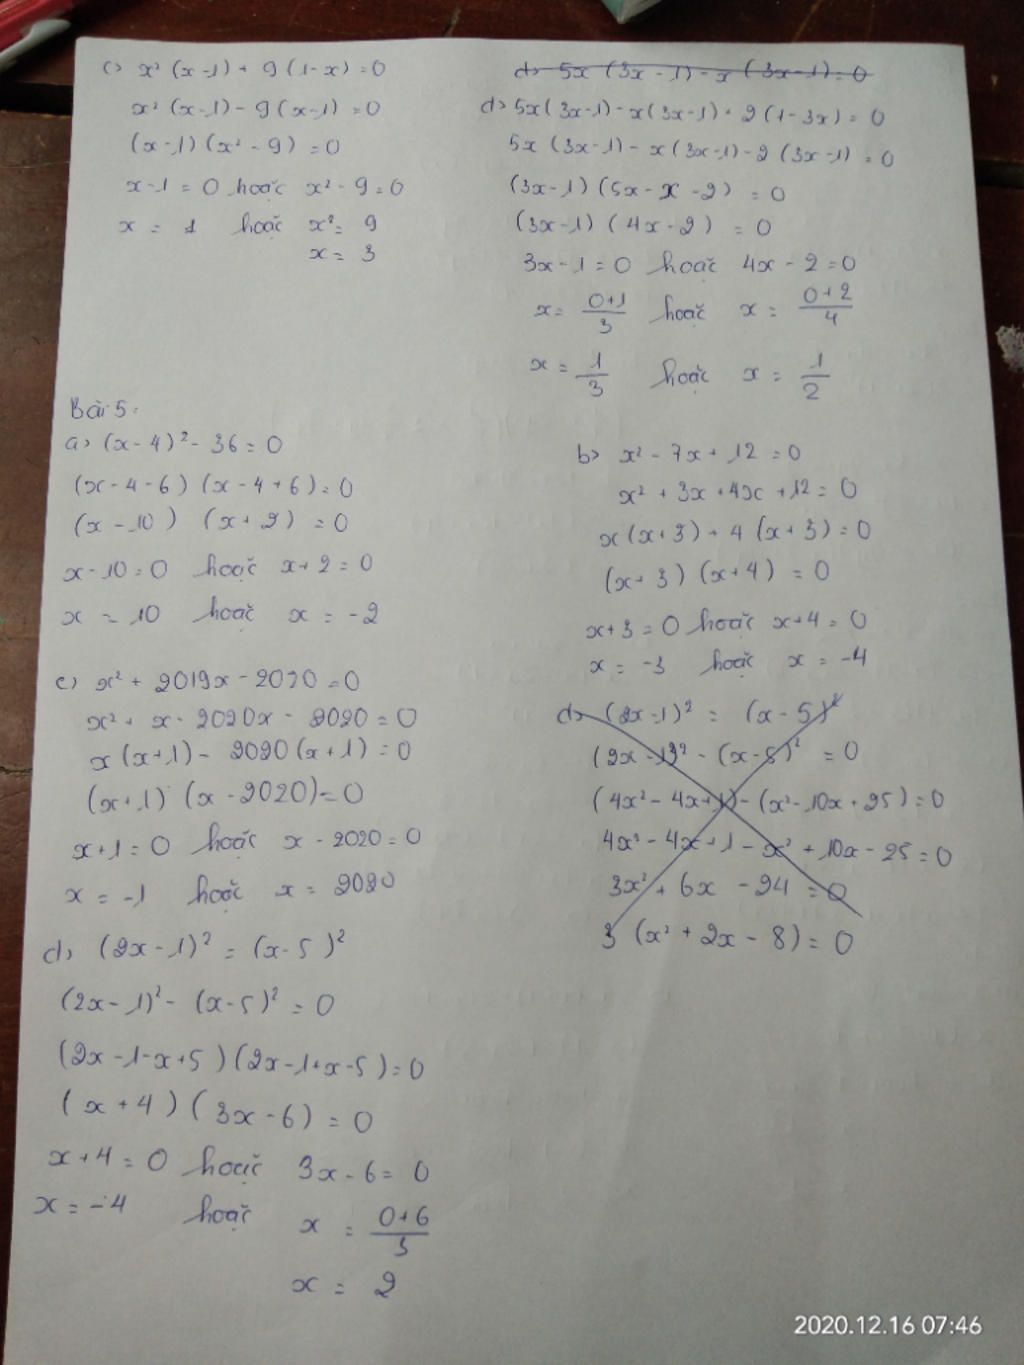 c) x² (x-1) + 9 (1-x) = 0
x² (x-1) - 9 (x-1) = 0
(x-1) (x² - 9) = 0
x-1 = 0 hoặc x² - 9 = 0
x = 1 hoặc x² = 9
x = 3
d) 5x (3x - 1) - x (3x-1) = 0
d) 5x(3x-1) - x(3x-1) + 2 (1-3x) = 0
5x (3x-1) - x(3x-1) - 2 (3x-1) = 0
(3x-1) (5x - x - 2) = 0
(3x-1) (4x - 2) = 0
3x - 1 = 0 hoặc 4x - 2 = 0
x = (0+1)/3 hoặc x = (0+2)/4
x = 1/3 hoặc x = 1/2
Bài 5:
a) (x-4)² - 36 = 0
(x-4-6) (x-4+6) = 0
(x-10) (x+2) = 0
x-10=0 hoặc x+2 = 0
x = 10 hoặc x = -2
b) x² - 7x + 12 = 0
x² + 3x + 4x + 12 = 0
x(x+3) + 4 (x+3) = 0
(x+3) (x+4) = 0
x+3 = 0 hoặc x+4 = 0
x = -3 hoặc x = -4
c) x² + 2019x - 2020 = 0
x² + x - 2020x - 2020 = 0
x(x+1) - 2020(x+1) = 0
(x+1) (x-2020) = 0
x+1 = 0 hoặc x - 2020 = 0
x = -1 hoặc x = 2020
d) (2x-1)² = (x-5)²
(2x-1)² - (x-5)² = 0
(4x² - 4x+1) - (x² - 10x + 25) = 0
4x² - 4x + 1 - x² + 10x - 25 = 0
3x² + 6x - 24 = 0
3 (x² + 2x - 8) = 0
d) (2x-1)² = (x-5)²
(2x-1)² - (x-5)² = 0
(2x-1-x+5) (2x-1+x-5) = 0
(x+4) (3x-6) = 0
x+4 = 0 hoặc 3x-6 = 0
x = -4 hoặc x = (0+6)/3
x = 2
2020.12.16 07:46